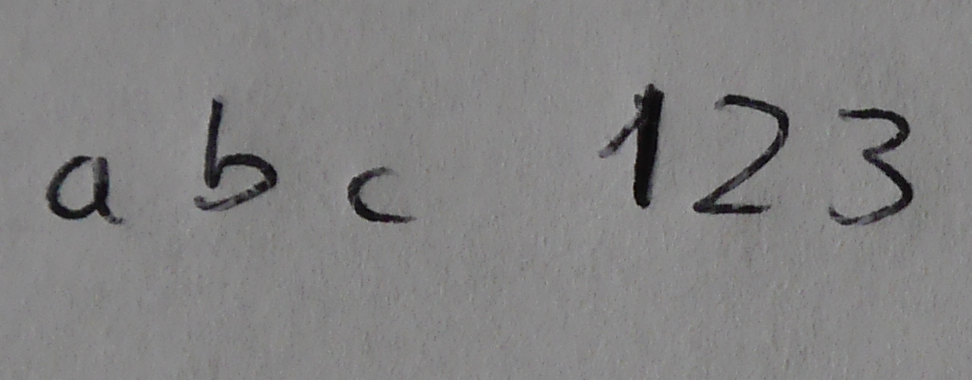 a b c 123